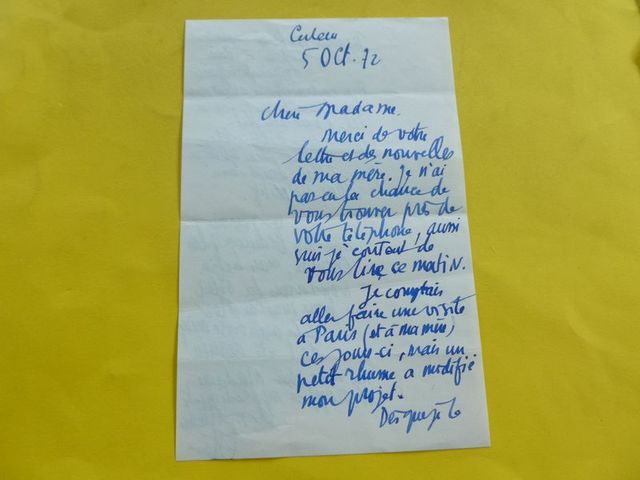 5 Oct. 72
Chère Madame.
Merci de votre
lettre et des nouvelles
de ma mère. Je n'ai
pas eu la chance de
vous trouver près de
votre téléphone, aussi
suis-je content de
vous lire ce matin.
Je comptais
aller faire une visite
à Paris (et à ma mère)
ces jours-ci, mais un
petit rhume a modifié
mon projet.
Dès que je le